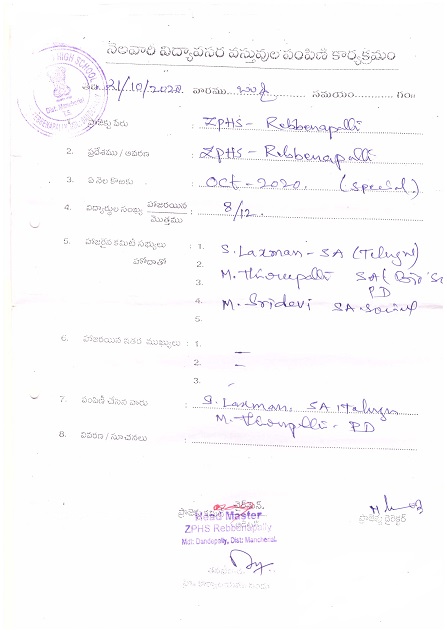 నెలవారి విద్యావసర వస్తువుల పంపిణి కార్యక్రమం
HIGH SCHOOL
తేది 21/10/2020 వారము బుధ సమయం గం
ప్రాజెక్టు పేరు : ZPHS - Rebbenapalli
2. ప్రదేశము / ఆవరణ : ZPHS - Rebbenapalli
3. ఏ నెల కొరకు : OCT - 2020. (Special.)
4. విద్యార్థుల సంఖ్య హాజరయిన / మొత్తము : 8/12.
5. హాజరైన కమిటీ సభ్యులు : 1. S. Laxman - SA (Telugu)
హోదాతో 2.
3. M. Thirupathi SA (Bio Sc
PD
4. M. Sridevi SA. Social
5.
6. హాజరయిన ఇతర ముఖ్యులు : 1. –
2. –
3. –
7. పంపిణి చేసిన వారు : S. Laxman. SA Telugu
M. Thirupathi - PD
8. వివరణ / సూచనలు :
Head Master
ZPHS Rebbenapally
Mdl: Dandepally, Dist: Mancherial.
ప్రాజెక్టు డైరెక్టర్